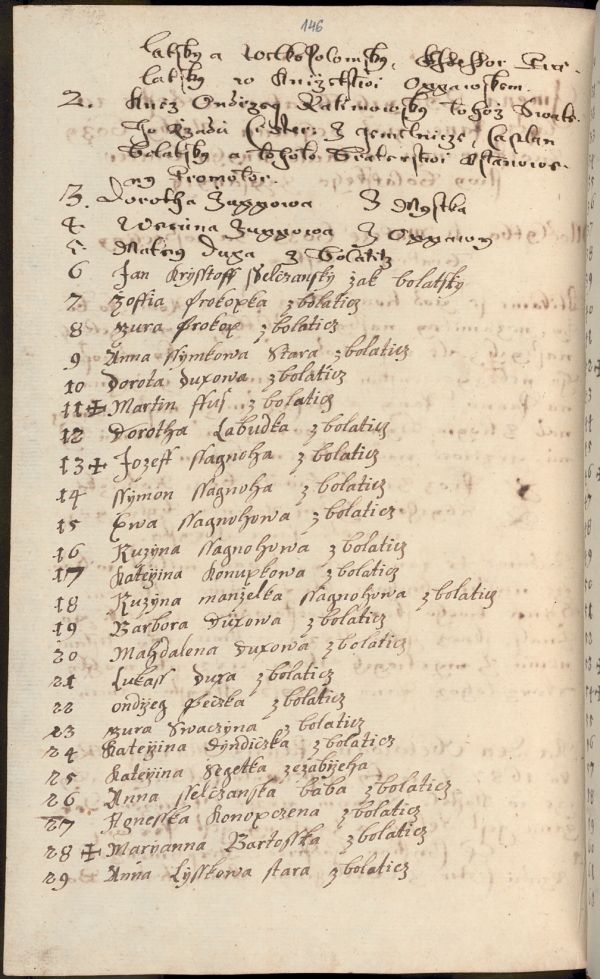 146
latsky a Welkopolomsky,
latsky w Knižetstwi Oppawskem.
2. Knez Ondrzeg Ratimowsky tohož Swate-
ho Rzadu
bolatsky a tohoto Braterstwi Ustanowe-
ny Promotor.
3. Dorotha Zuppowa Z Mystka
4 Weruna Zuppowa Z Oppawy
5 Matey Duxa z bolatitz
6 Jan Krysstoff sselczansky žak bolatsky
7 Zoffia Prokopka z bolaticz
8 Prokop z bolaticz
9 Anna ssymkowa Stara z bolaticz
10 Dorota Duxowa z bolaticz
11 ✠ Martin z bolaticz
12 Dorotha Labudka z bolaticz
13 ✠ Jozeff ssagnoha z bolaticz
14 ssymon ssagnoha z bolaticz
15 Ewa ssagnohowa z bolaticz
16 Ruzyna ssagnohowa z bolaticz
17 Kateyina Konupkowa z bolaticz
18 Ruzyna manzelka ssagnohowa z bolaticz
19 Barbora Duxowa z bolaticz
20 Mahdalena Duxowa z bolaticz
21 Lukass Duxa z bolaticz
22 ondyeg Peczka z bolaticz
23 Swaczyna z bolaticz
24 Kateyina Dyndiczka z bolaticz
25 Kateyina Segetka zezabyeha
26 Anna sselczanska baba z bolaticz
27 Agnesska Konopczena z bolaticz
28 ✠ Maryanna Bartosska z bolaticz
29 Anna Lysskowa stara z bolaticz